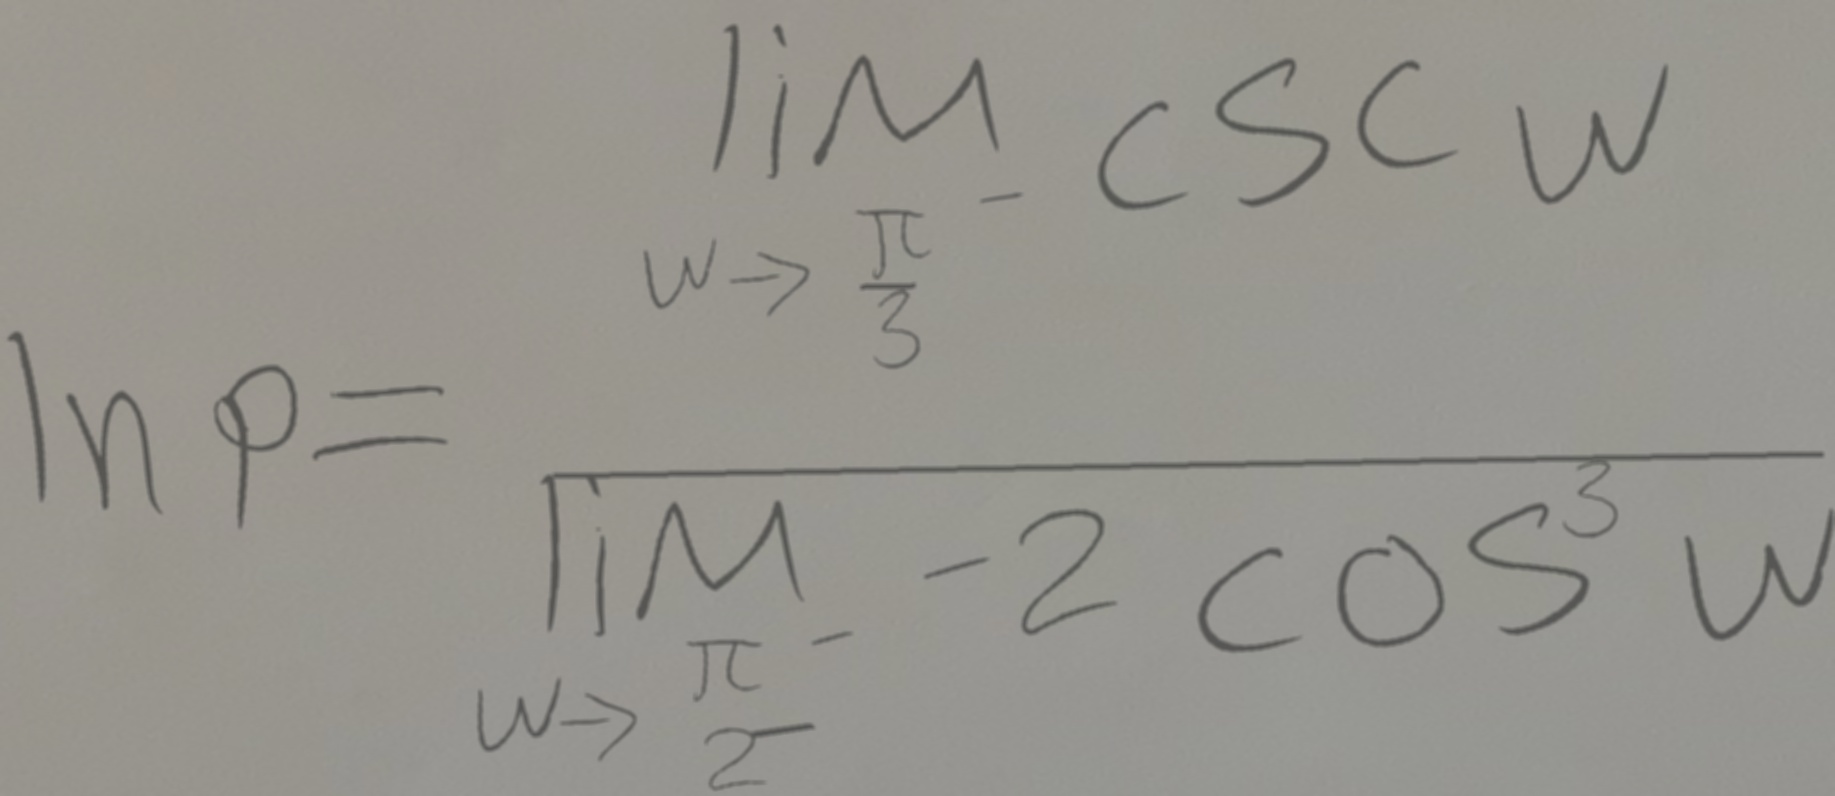 ln p = \frac{\lim_{w \to \frac{\pi}{3}^-} \csc w}{\lim_{w \to \frac{\pi}{2}^-} -2 \cos^3 w}